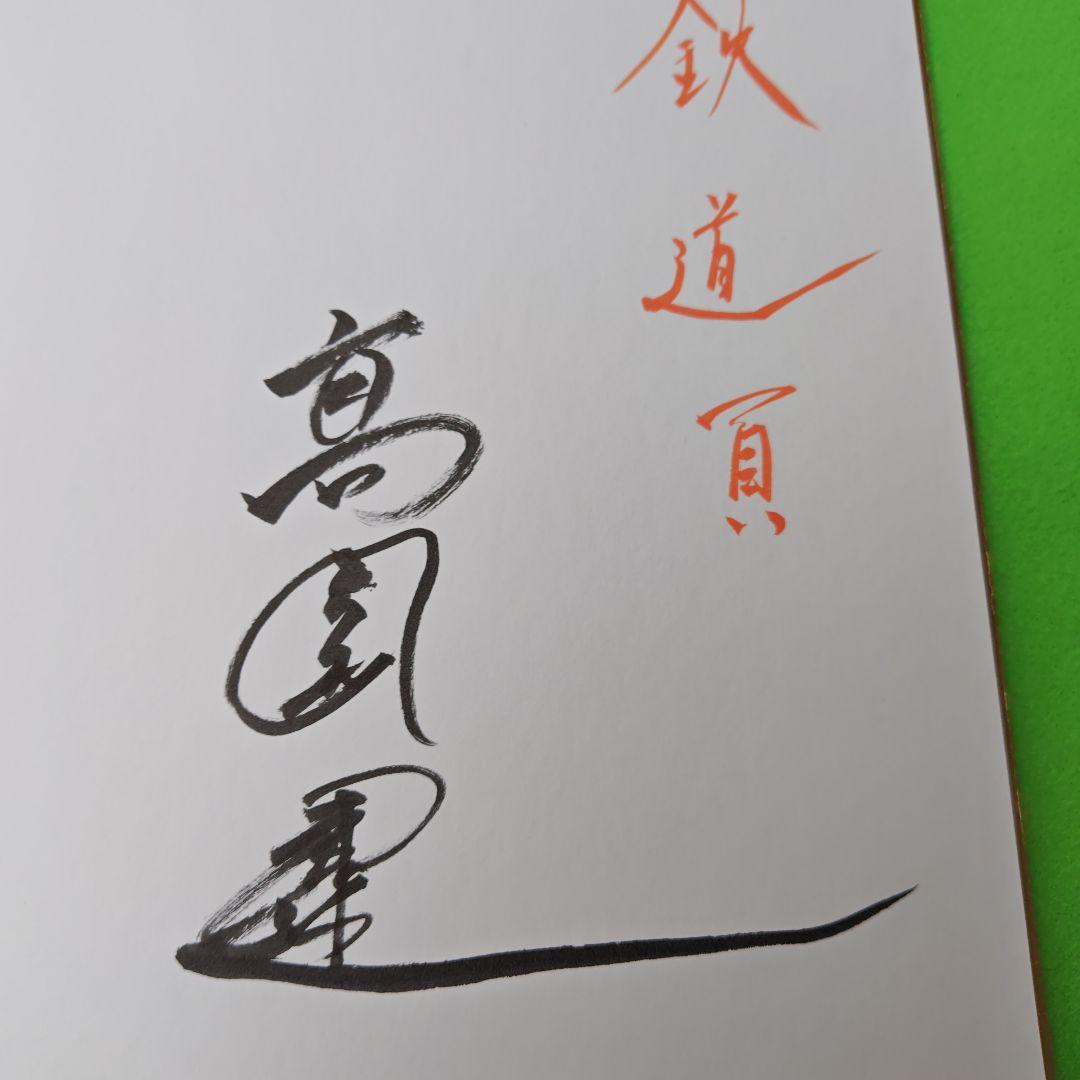 鉄道員
高倉健